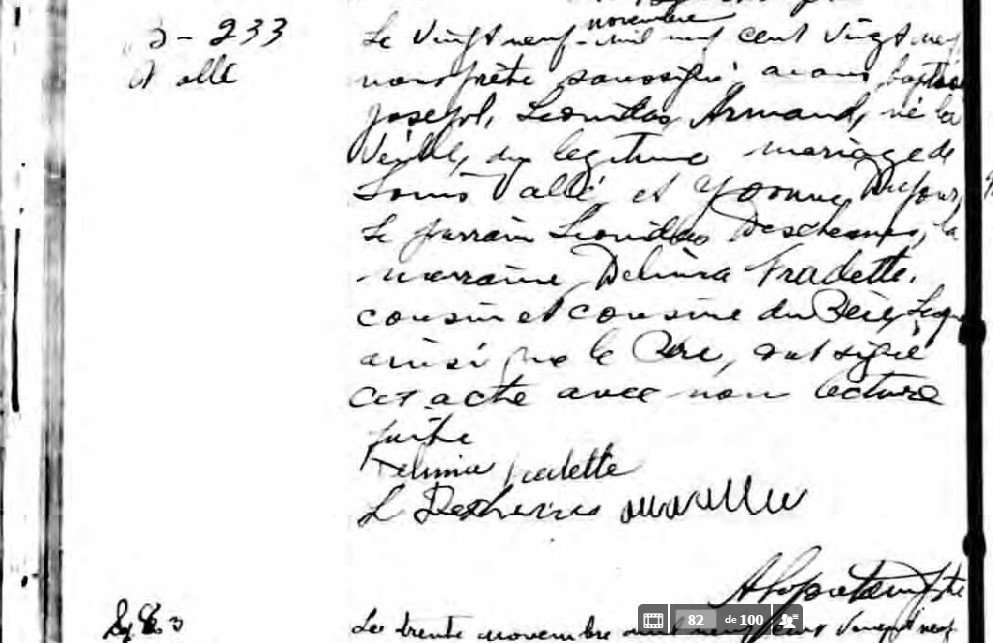 B-233
Vallé
novembre
Le vingt neuf mil neuf cent vingt neuf
nous prêtre soussigné avons baptisé
Joseph, Leonidas Armand, né la
veille, du legitime mariage de
Louis Vallé et Yvonne Dufour,
Le parrain Leonidas Deschenes, la
marraine, Delmina Fradette.
cousin et cousine du Père, Lesquels
ainsi que le Père, ont signé
cet acte avec nous lecture
faite
Delmina Fradette
L Deschenes
ptre
82 de 100
Le trente novembre mil neuf cent vingt neuf